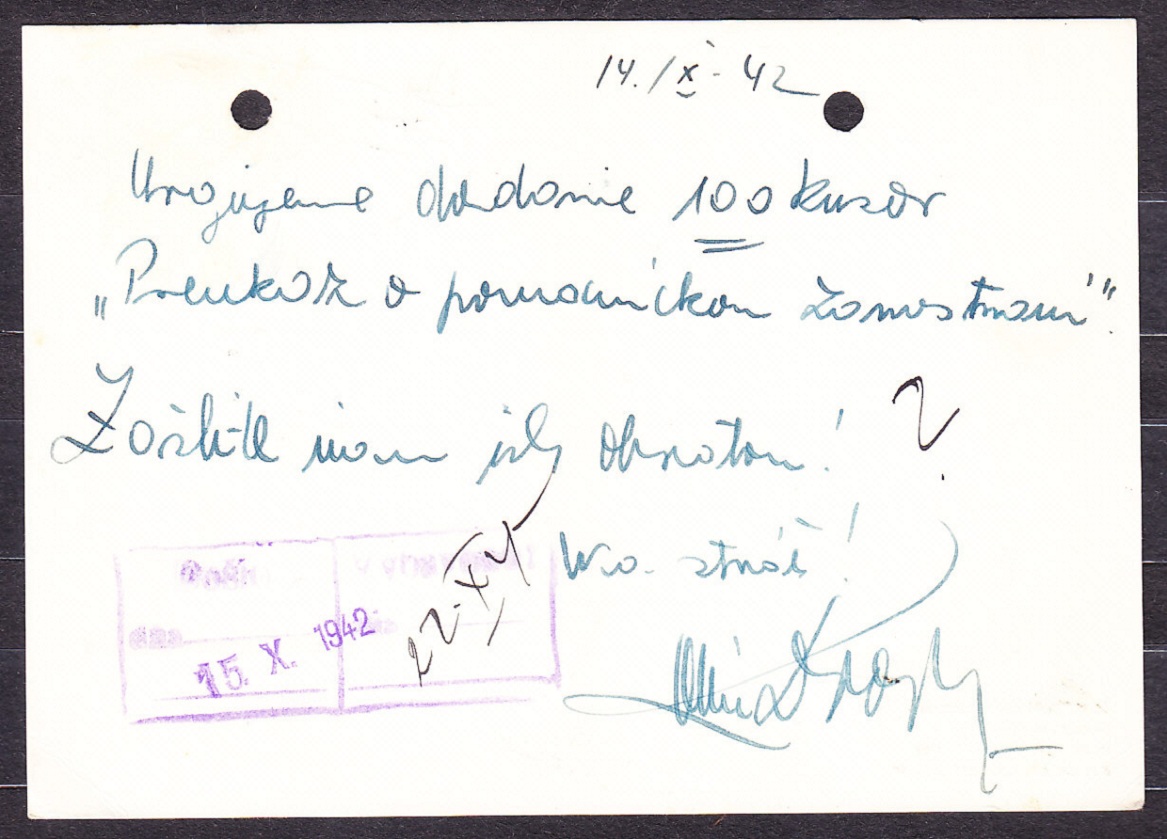 14./X. 42
Urgujeme dodanie 100 kusov
„Preukaz o pomocníckom zamestnaní".
Zašlite nám ich obratom!
Na stráž!
15. X. 1942
22-XI